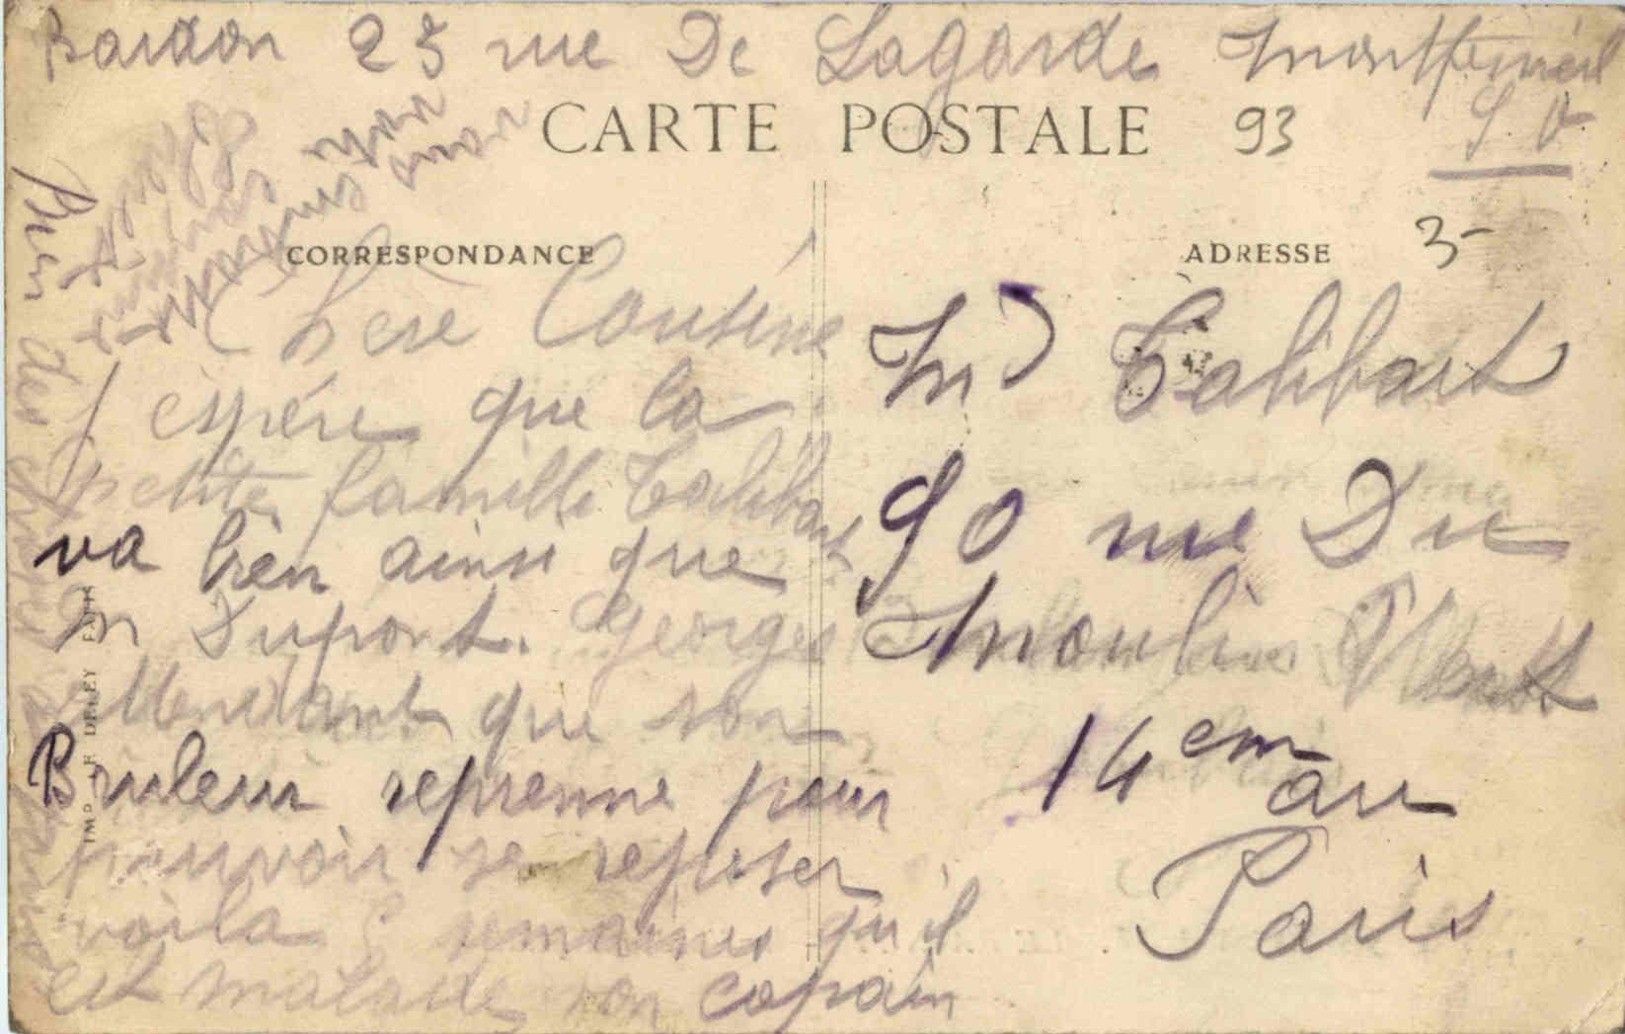 Bardon 25 rue De Lagarde Montfermeil
S O
CARTE POSTALE
93
3-
CORRESPONDANCE
ADRESSE
Chère Cousine
J espére que la
petite famille Calibart
va bien ainsi que
M Dupont. Georges
attendant que son
Bruleur reprenne pour
pouvoir se reposer
voila semaines qu il
est malade son copain
Md Calibart
90 rue Du
Moulin Vert
14em au
Paris
Bien des choses a
IMP. LE DELEY